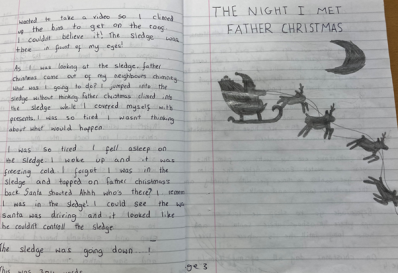 wanted to take a video so I climbed
up the bins to get on the roof
I couldn't believe it! The sledge was
there in front of my eyes!
As I was looking at the sledge, father
christmas came out of my neighbours chimney
What was I going to do? I jumped into the
sledge without thinking father christmas climed into
the sledge while I covered myself with
presents. I was so tired I wasnt thinking
about what would happen.
I was so tired I fell asleep on
the sledge I woke up and it was
freezing cold I forgot I was in the
sledge and tapped on father christmas's
back Santa shouted Ahhh who's there? I
I was in the sledge! I could see the
Santa was driving and it looked like
he couldn't controll the sledge.
The sledge was going down
This was
THE NIGHT I MET
FATHER CHRISTMAS
3